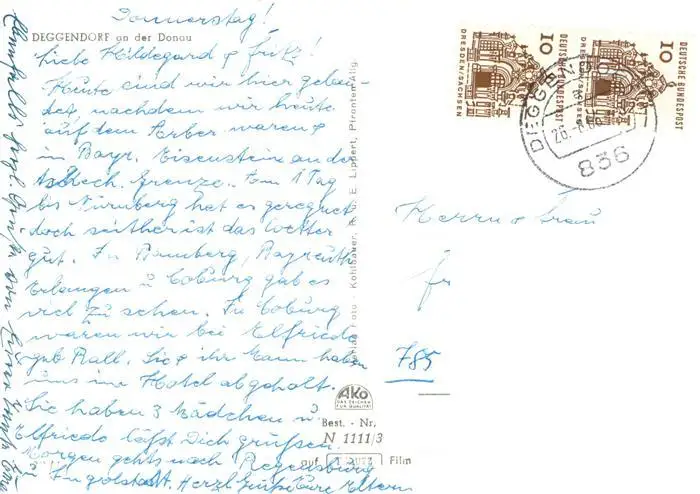 Donnerstag!
DEGGENDORF an der Donau
Liebe Hildegard & Fritz!
Heute sind wir hier gelan-
det nachdem wir heute
auf dem Arber waren &
in Bayr. Eisenstein an der
tschech. Grenze. Am 1 Tag
bis Nürnberg hat es geregnet
doch seither ist das Wetter
gut. In Bamberg, Bayreuth
Erlangen u Coburg gab es
viel zu sehen. In Coburg
waren wir bei Elfriede
geb Rall. Sie & ihr Mann haben
uns im Hotel abgeholt.
Sie haben 3 Mädchen u
Elfriede läßt Dich grüßen.
Morgen gehts nach Regensburg
Ingolstadt. Herzl Grüße Eure Eltern
Ebenfalls
Verlag Foto - Kohlbauer, R. u. E. Lippert, Piranten Allg.
AKO
DAS ZEICHEN
FÜR QUALITÄT
Best. - Nr.
N 1111/3
auf
Film
10
DEUTSCHE BUNDESPOST
DRESDEN/SACHSEN
10
DEUTSCHE BUNDESPOST
DRESDEN/SACHSEN
836
Herrn & Frau
785